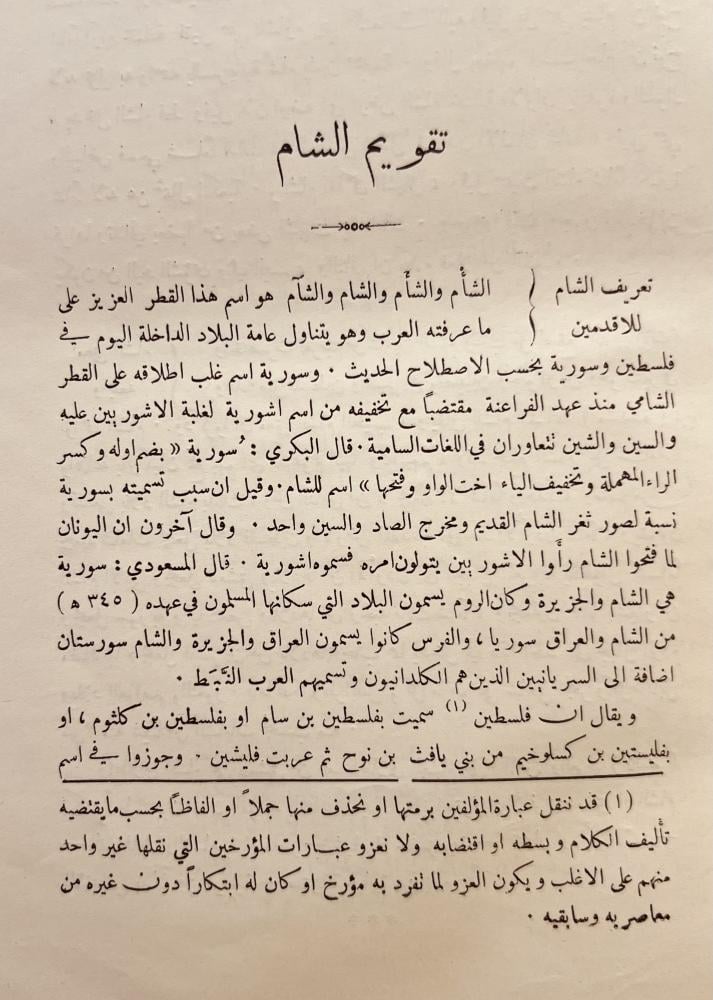 تقويم الشام
تعريف الشام
للاقدمين
الشأْم والشأَم والشام والشآم هو اسم هذا القطر العزيز على
ما عرفته العرب وهو يتناول عامة البلاد الداخلة اليوم في
فلسطين وسورية بحسب الاصطلاح الحديث . وسورية اسم غلب اطلاقه على القطر
الشامي منذ عهد الفراعنة مقتضباً مع تخفيفه من اسم اشورية لغلبة الاشوريين عليه
والسين والشين تتعاوران في اللغات السامية . قال البكري : سُورية « بضم اوله وكسر
الراء المهملة وتخفيف الياء اخت الواو وفتحها » اسم للشام . وقيل ان سبب تسميته بسورية
نسبة لصور ثغر الشام القديم ومخرج الصاد والسين واحد . وقال آخرون ان اليونان
لما فتحوا الشام رأَوا الاشوريين يتولون امره فسموه اشورية . قال المسعودي : سورية
هي الشام والجزيرة وكان الروم يسمون البلاد التي سكانها المسلمون في عهده ( ٣٤٥ ه )
من الشام والعراق سوريا ، والفرس كانوا يسمون العراق والجزيرة والشام سورستان
اضافة الى السريانيين الذين هم الكلدانيون وتسميهم العرب النَّبَط .
ويقال ان فلسطين (١) سميت بفلسطين بن سام او بفلسطين بن كلثوم ، او
بفليستين بن كسلوخيم من بني يافث بن نوح ثم عربت فليشين . وجوزوا في اسم
(١) قد ننقل عبارة المؤلفين برمتها او نحذف منها جملاً او الفاظاً بحسب ما يقتضيه
تأليف الكلام وبسطه او اقتضابه ولا نعزو عبارات المؤرخين التي نقلها غير واحد
منهم على الاغلب ويكون العزو لما تفرد به مؤرخ او كان له ابتكاراً دون غيره من
معاصريه وسابقيه .